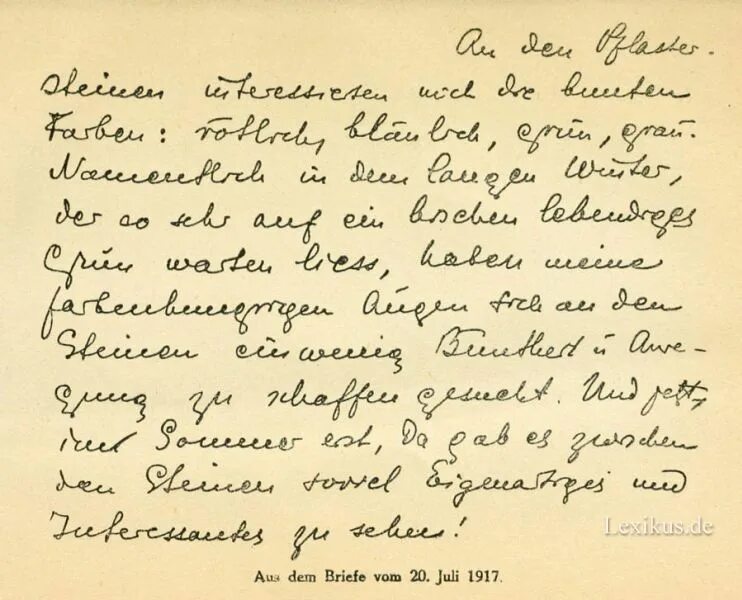 An den Pflaster-
steinen interessierten mich die bunten
Farben: rötlich, bläulich, grün, grau.
Namentlich in dem langen Winter,
der so sehr auf ein bischen lebendiges
Grün warten liess, haben meine
farbenhungrigen Augen sich an den
Steinen einwenig Buntheit u Anre-
gung zu schaffen gesucht. Und jetzt,
im Sommer erst, da gab es zwischen
den Steinen soviel Eigenartiges und
Interessantes zu sehen!
Lexikus.de
Aus dem Briefe vom 20. Juli 1917.